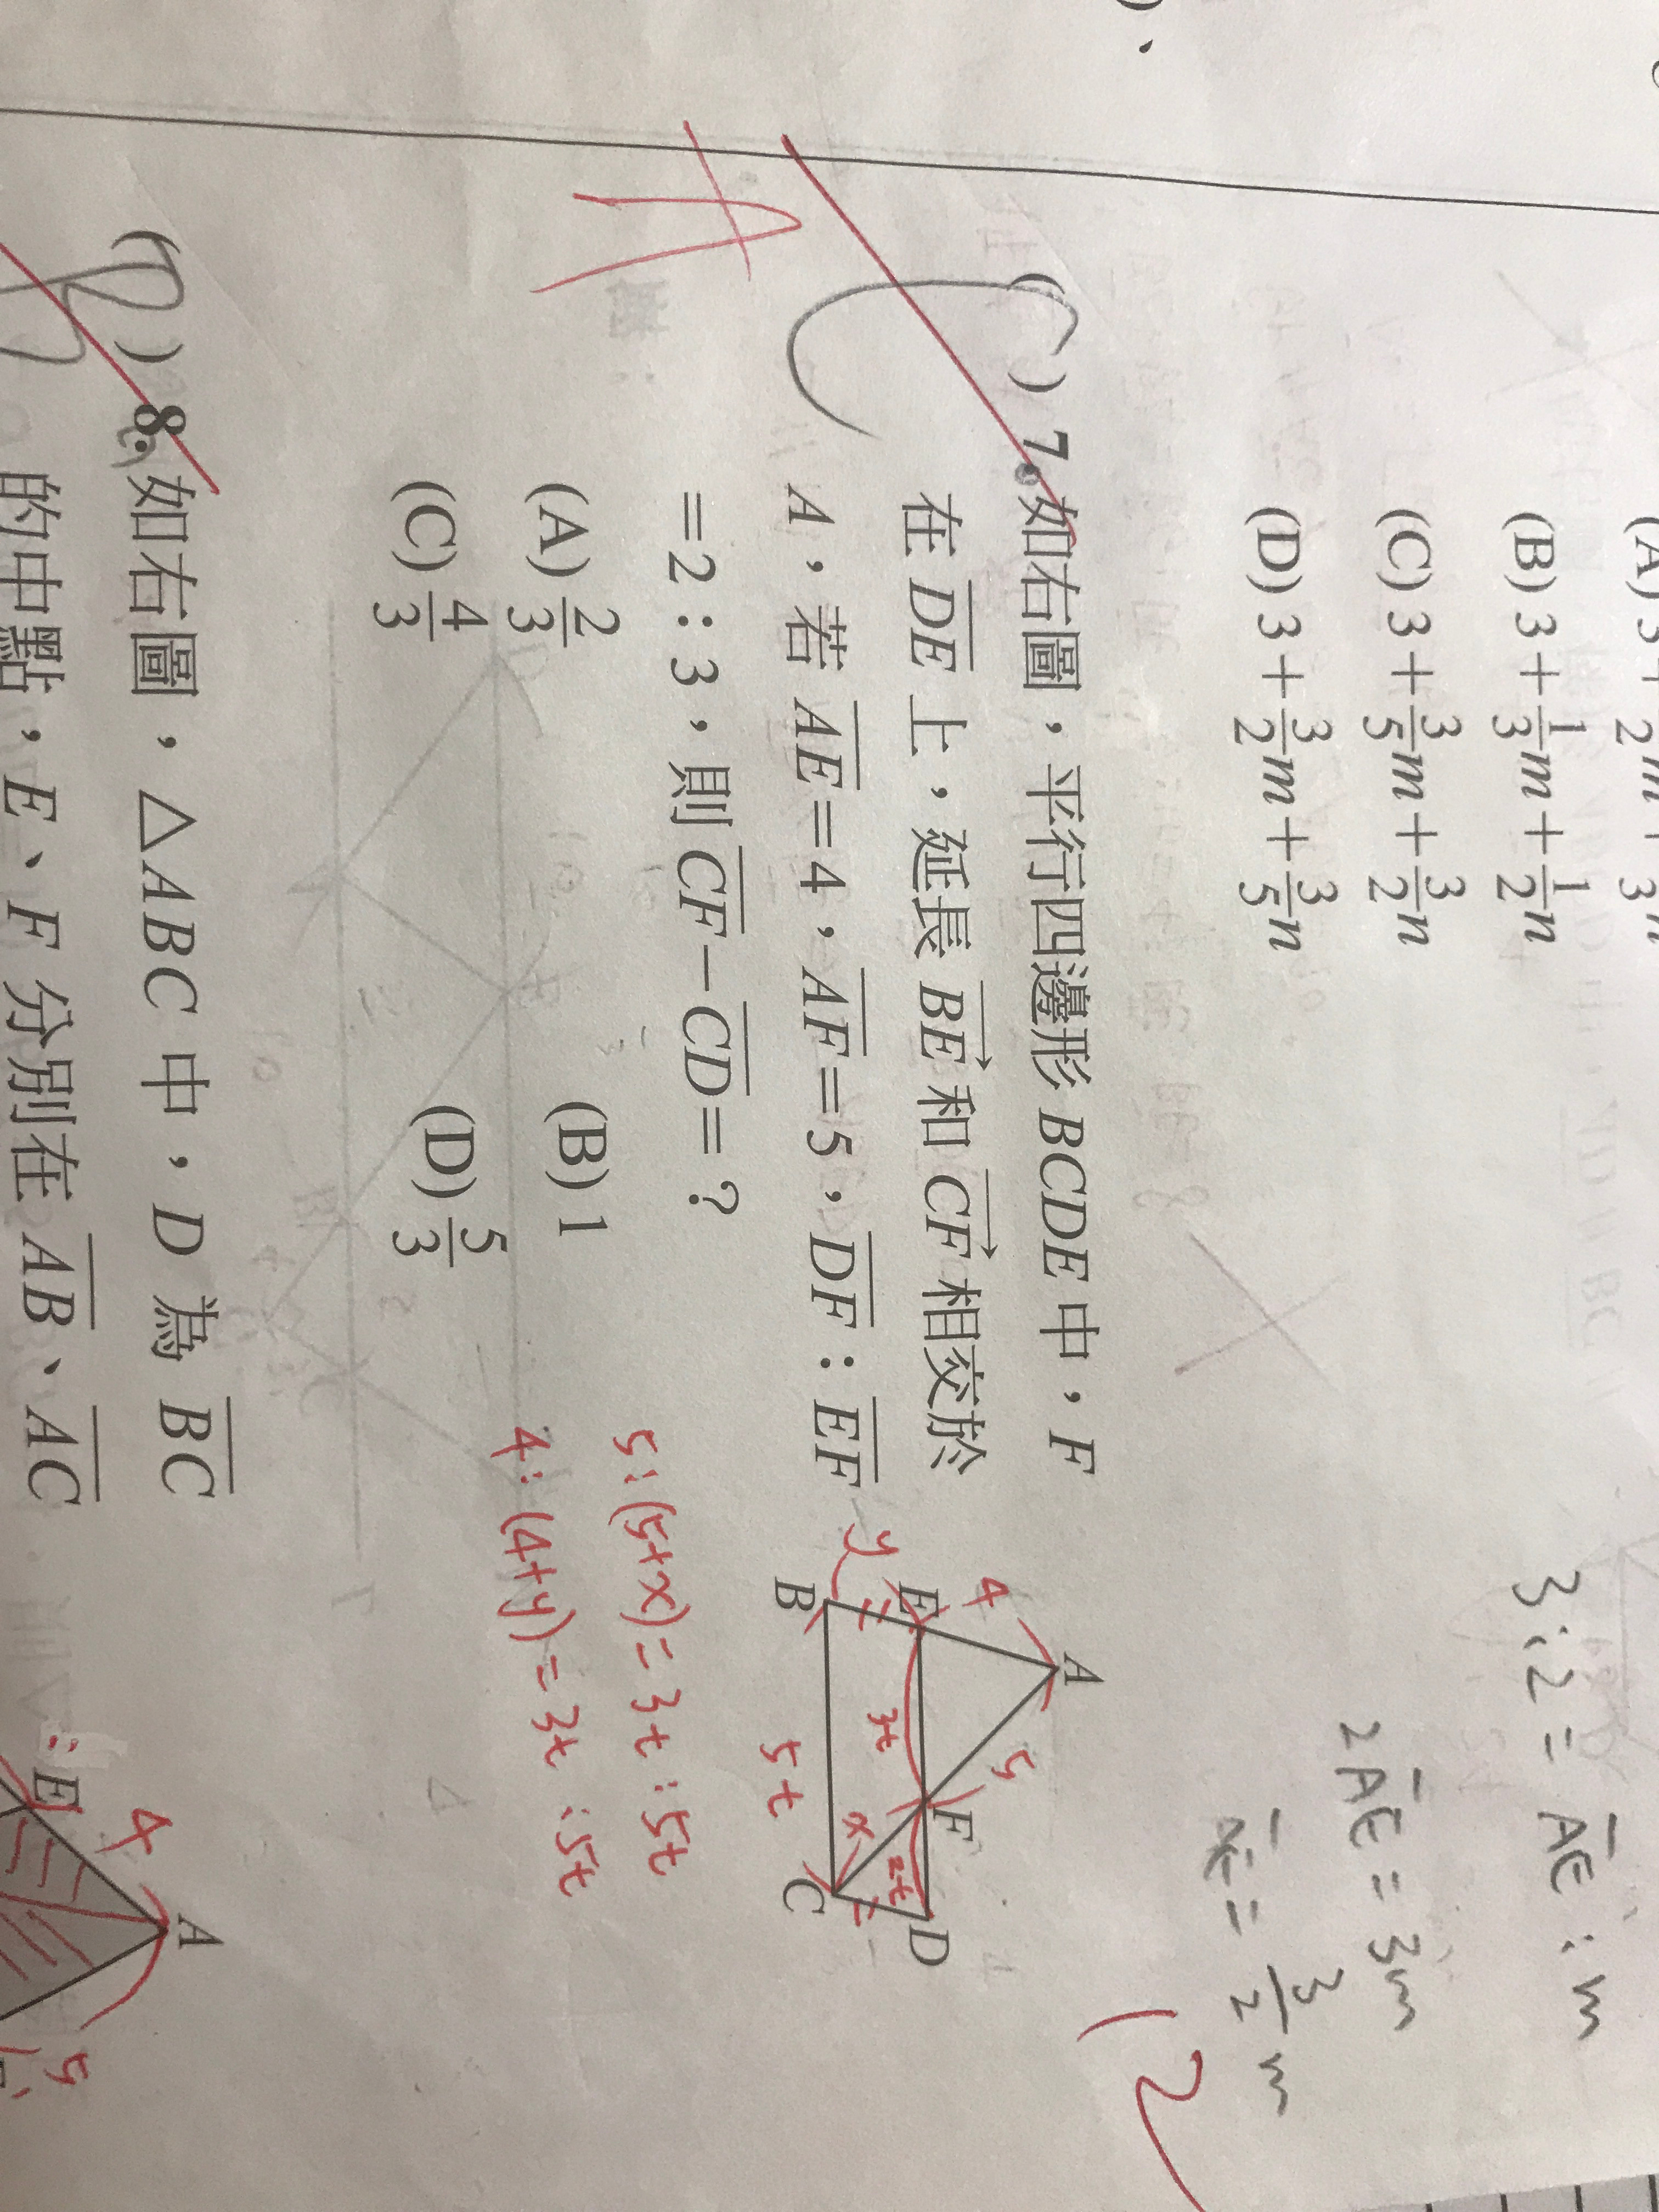 (B) 3+1/3m+1/2n
(C) 3+3/5m+3/2n
(D) 3+3/2m+3/5n
3:2=AE:m
2AE=3m
AE=3/2m
12
A
( C ) 7. 如右圖，平行四邊形 BCDE 中，F
在 DE 上，延長 BE 和 CF 相交於
A，若 AE=4，AF=5，DF：EF
=2：3，則 CF－CD=？
(A) 2/3 (B) 1
(C) 4/3 (D) 5/3
A
4
5
E
3t
F
2t
D
y
x
B
5t
C
5:(5+x)=3t:5t
4:(4+y)=3t:5t
( ) 8. 如右圖，△ABC 中，D 為 BC
的中點，E、F 分別在 AB、AC
A
4
5
E